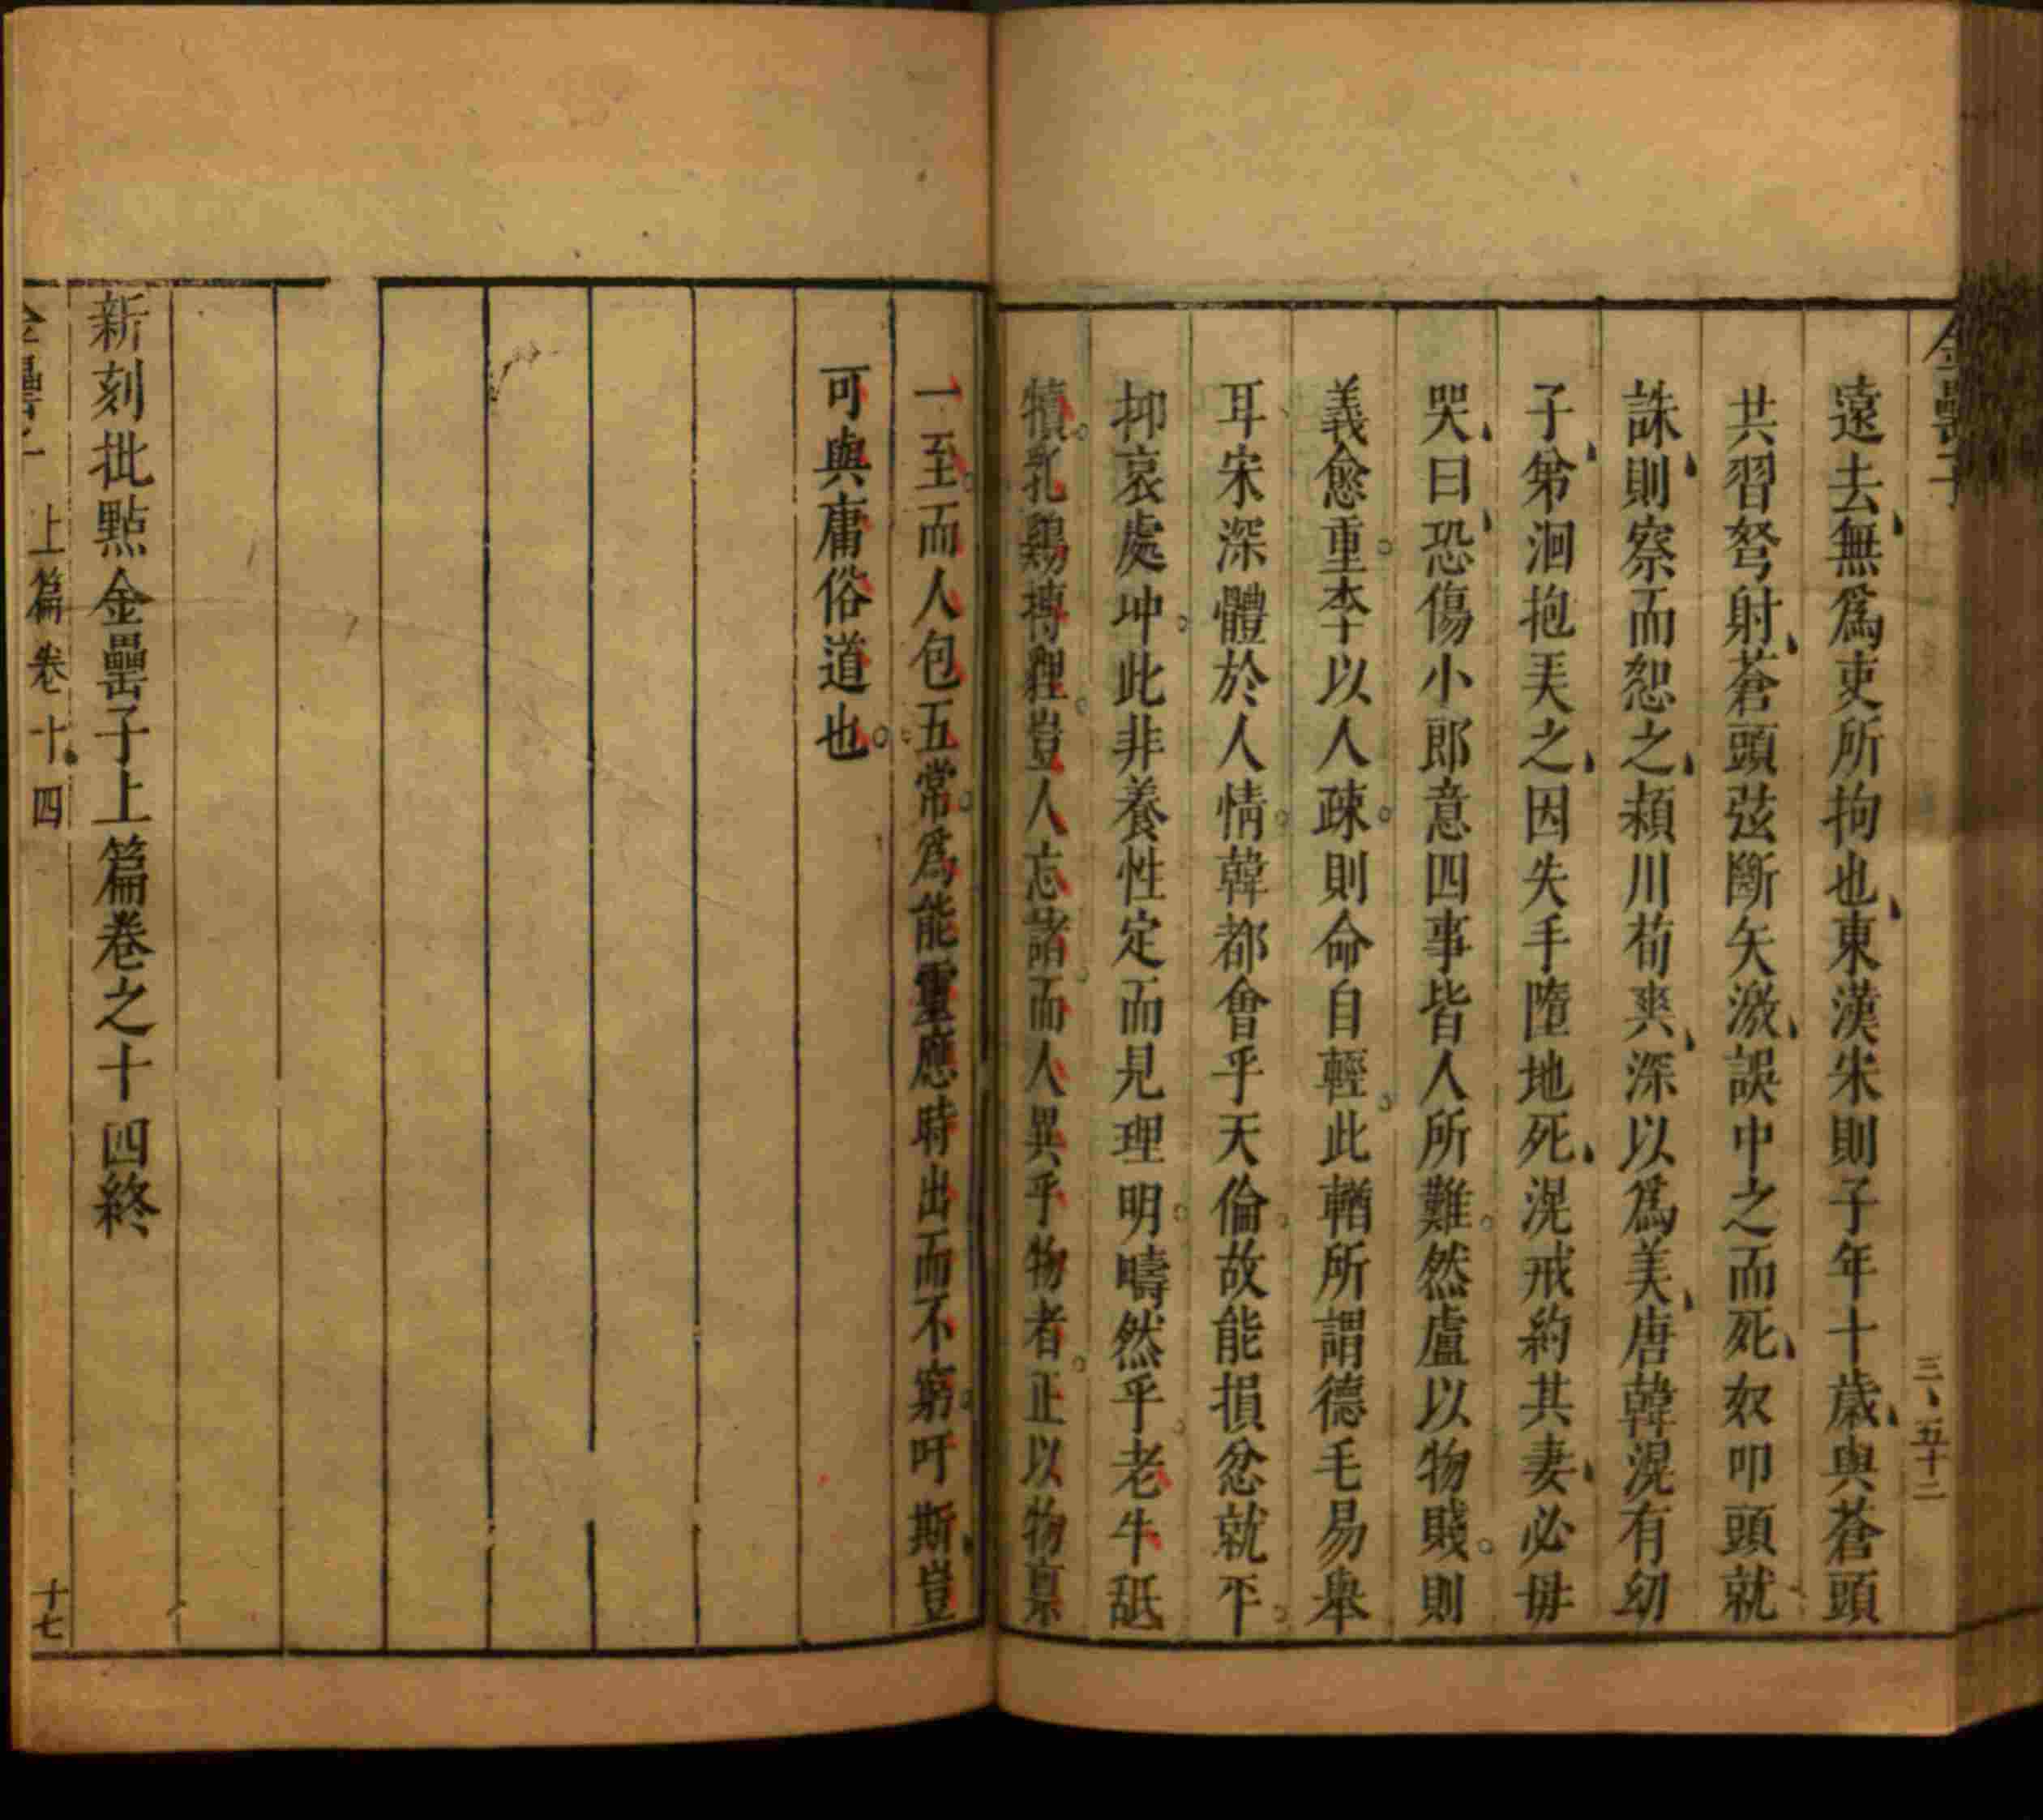 遠去無爲吏所拘也東漢朱則子年十歲與蒼頭
共習弩射蒼頭弦斷矢激誤中之而死奴叩頭就
誅則察而恕之潁川荀爽深以爲美唐韓滉有幼
子弟洄抱弄之因失手墮地死滉戒約其妻必毋
哭曰恐傷小郎意四事皆人所難然盧以物賤則
義愈重李以人疎則命自輕此輶所謂德毛易舉
耳宋深體於人情韓都會乎天倫故能損忿就平
抑哀處冲此非養性定而見理明疇然乎老牛舐
犢乳鷄摶貍豈人忘諸而人異乎物者正以物稟
一至而人包五常爲能靈應時出而不窮吁斯豈
可與庸俗道也
新刻批點金罍子上篇卷之十四終
上篇卷十四
十七